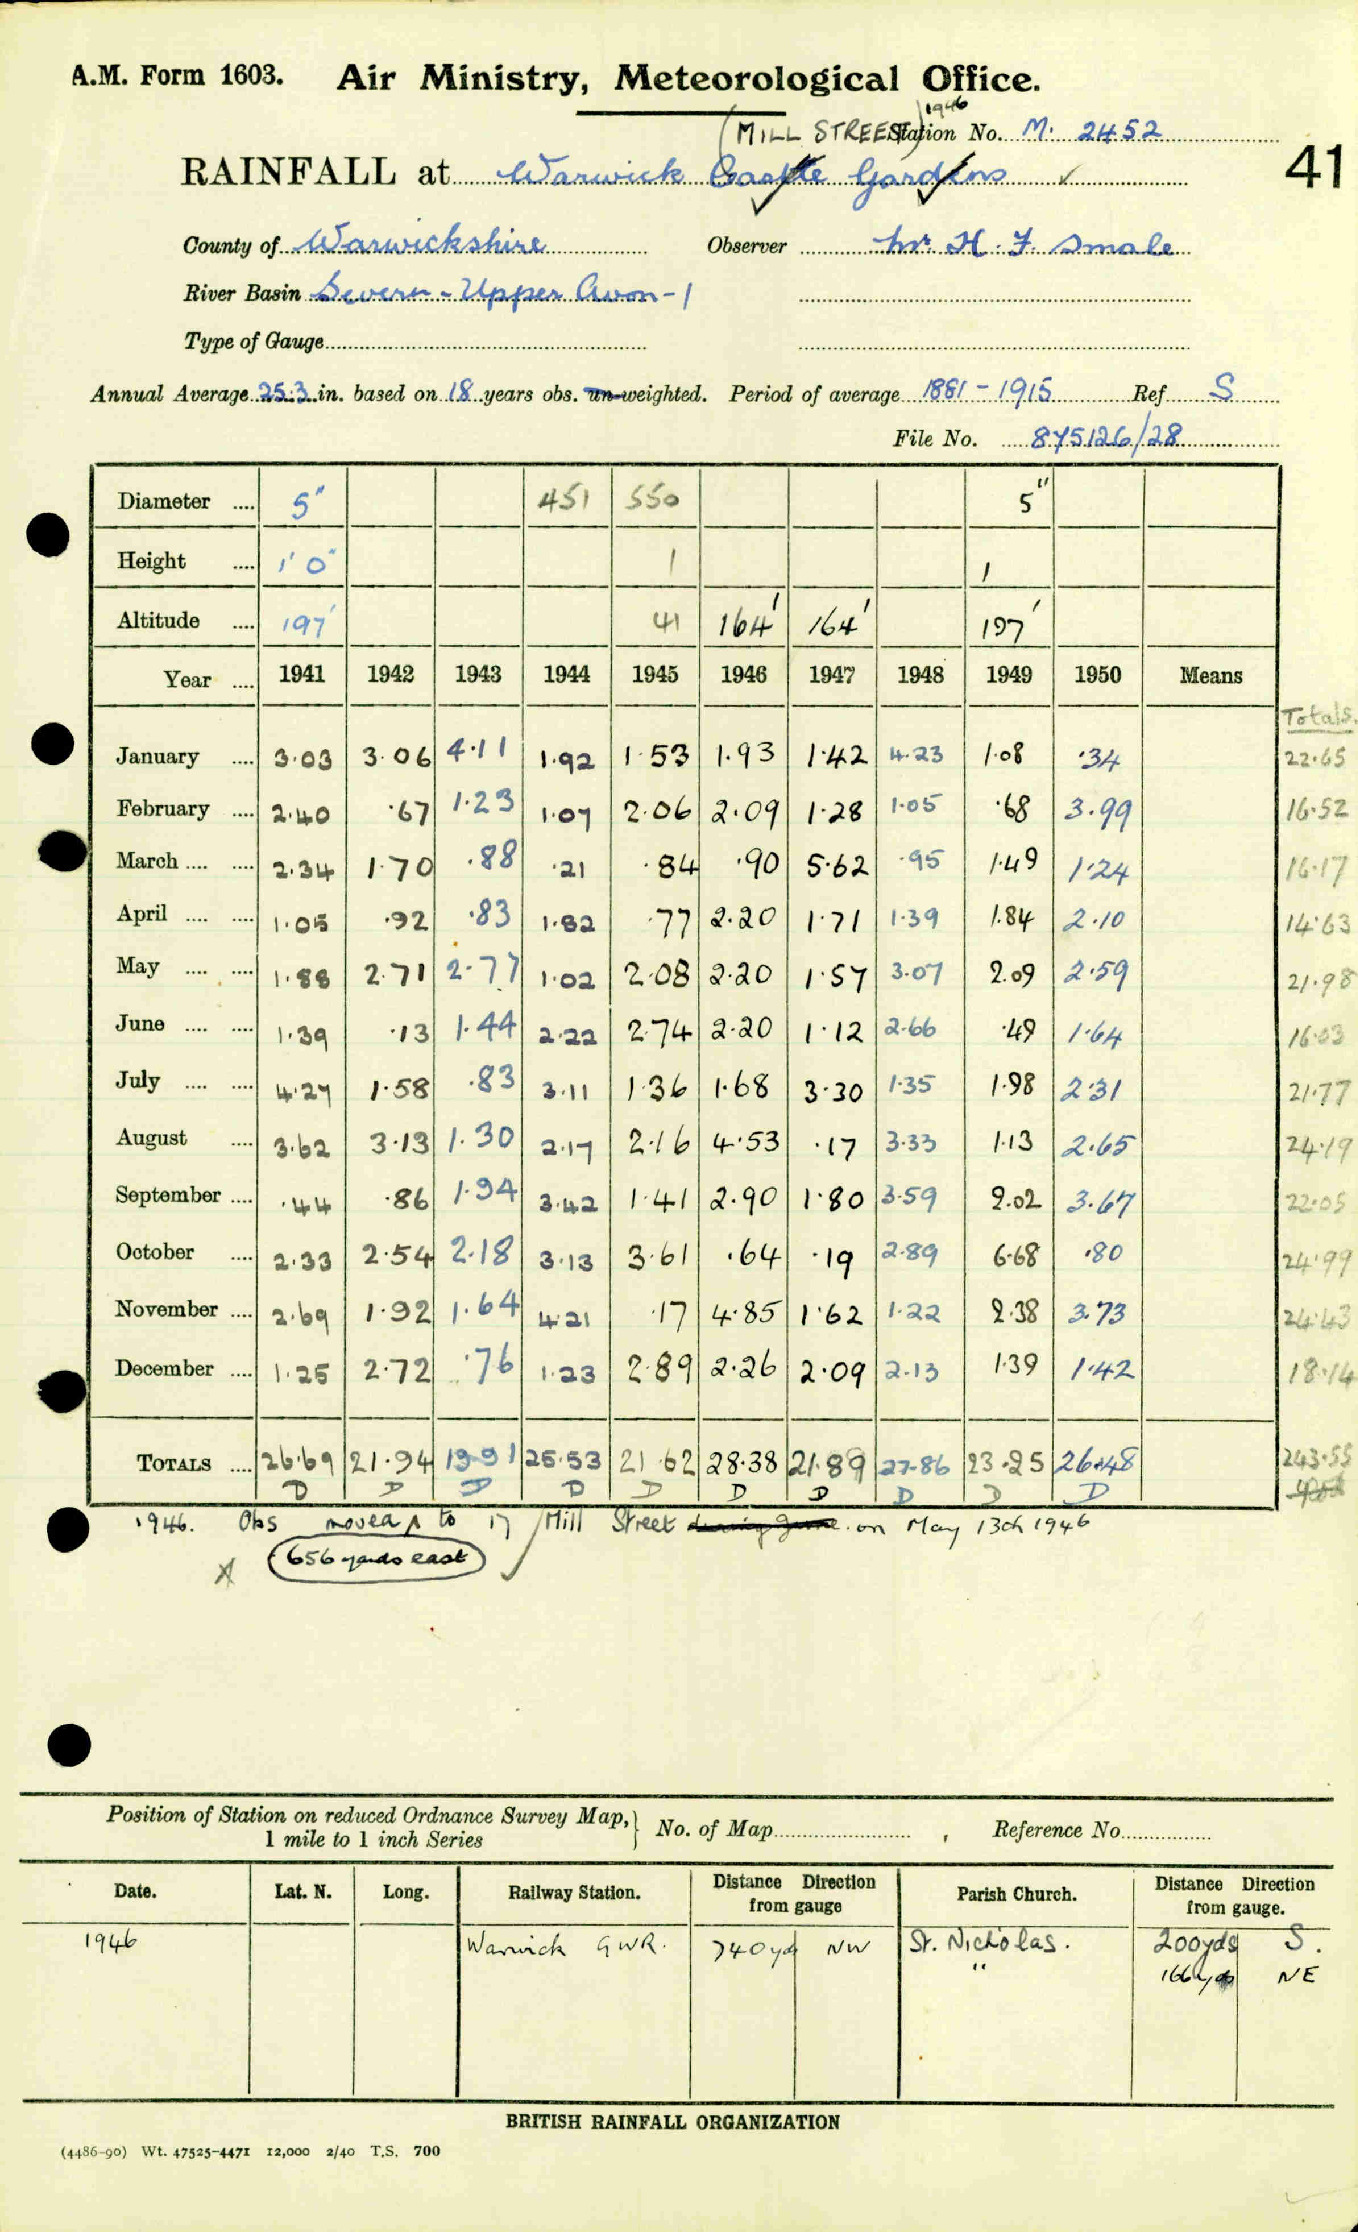 A.M. Form 1603. Air Ministry, Meteorological Office.
(MILL STREET) 1946 Station No. M. 2452
RAINFALL at Warwick Castle Gardens ✓
41
County of Warwickshire Observer Mr. H. F. Smale
River Basin Severn - Upper Avon - 1
Type of Gauge
Annual Average 25.3 in. based on 18 years obs. un-weighted. Period of average 1881 - 1915 Ref S
File No. 875126/28
Diameter .... 5" 451 550 5"
Height .... 1' 0" 1 1
Altitude .... 197' 41 164' 164' 197'
Year .... 1941 1942 1943 1944 1945 1946 1947 1948 1949 1950 Means
Totals.
January .... 3.03 3.06 4.11 1.92 1.53 1.93 1.42 4.23 1.08 .34 22.65
February .... 2.40 .67 1.23 1.07 2.06 2.09 1.28 1.05 .68 3.99 16.52
March .... .... 2.34 1.70 .88 .21 .84 .90 5.62 .95 1.49 1.24 16.17
April .... .... 1.05 .92 .83 1.82 .77 2.20 1.71 1.39 1.84 2.10 14.63
May .... .... 1.88 2.71 2.77 1.02 2.08 2.20 1.57 3.07 2.09 2.59 21.98
June .... .... 1.39 .13 1.44 2.22 2.74 2.20 1.12 2.66 .49 1.64 16.03
July .... .... 4.27 1.58 .83 3.11 1.36 1.68 3.30 1.35 1.98 2.31 21.77
August .... 3.62 3.13 1.30 2.17 2.16 4.53 .17 3.33 1.13 2.65 24.19
September .... .44 .86 1.94 3.42 1.41 2.90 1.80 3.59 2.02 3.67 22.05
October .... 2.33 2.54 2.18 3.13 3.61 .64 .19 2.89 6.68 .80 24.99
November .... 2.69 1.92 1.64 4.21 .17 4.85 1.62 1.22 2.38 3.73 24.43
December .... 1.25 2.72 .76 1.23 2.89 2.26 2.09 2.13 1.39 1.42 18.14
TOTALS .... 26.69 21.94 19.91 25.53 21.62 28.38 21.89 27.86 23.25 26.48 243.55
D D D D D D D D D D
1946. Obs moved to 17 Mill Street on May 13th 1946
X 656 yards east
Position of Station on reduced Ordnance Survey Map,
1 mile to 1 inch Series
No. of Map , Reference No.
Date. Lat. N. Long. Railway Station. Distance Direction from gauge Parish Church. Distance Direction from gauge.
1946 Warwick GWR. 740 yds NW St. Nicholas. 200yds S.
" 166yds NE
BRITISH RAINFALL ORGANIZATION
(4486-90) Wt. 47525-4471 12,000 2/40 T.S. 700